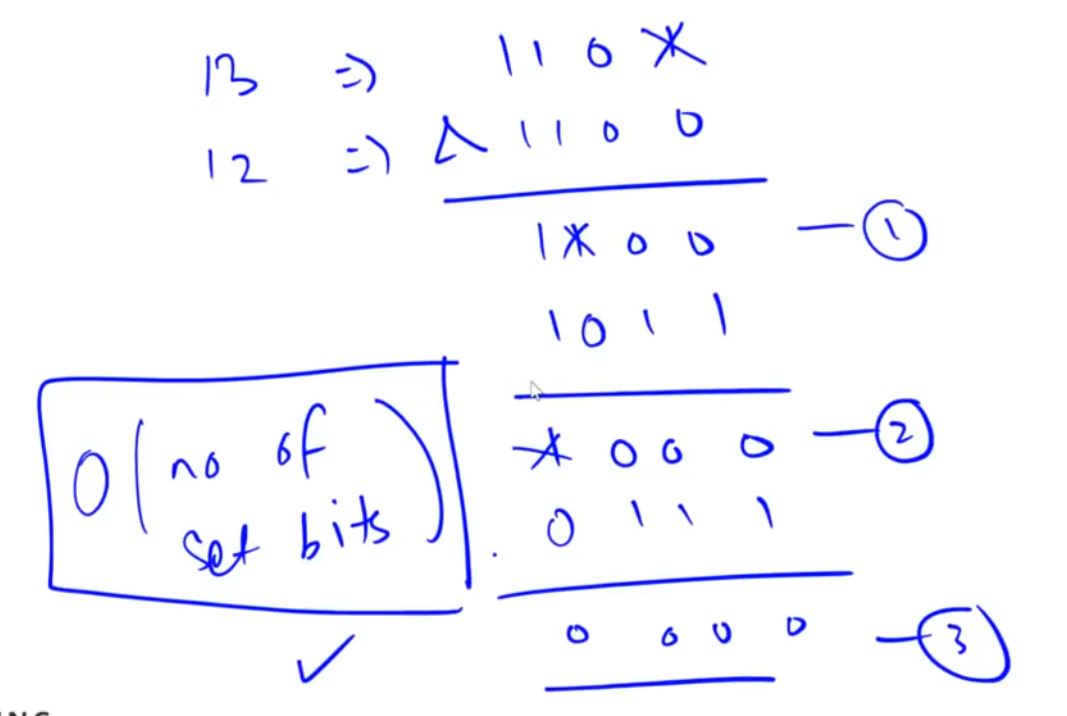 13 => 1 1 0 *
12 => ∧ 1 1 0 0
1 * 0 0 — 1
1 0 1 1
* 0 0 0 — 2
0 1 1 1
0 0 0 0 — 3
O(no of
set bits)
✓